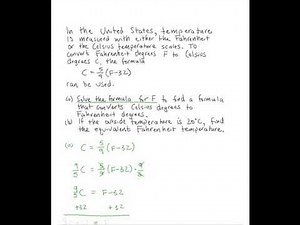 In the United States, temperature
is measured with either the Fahrenheit
or the Celsius temperature scales. To
convert Fahrenheit degrees F to Celsius
degrees C, the formula
C = 5/9 (F-32)
can be used.
(a) Solve the formula for F to find a formula
that converts Celsius degrees to
Fahrenheit degrees.
(b) If the outside temperature is 25°C, find
the equivalent Fahrenheit temperature.
(a) C = 5/9 (F-32)
9/5 C = 5/9 (F-32) · 9/5
9/5 C = F-32
+32 +32